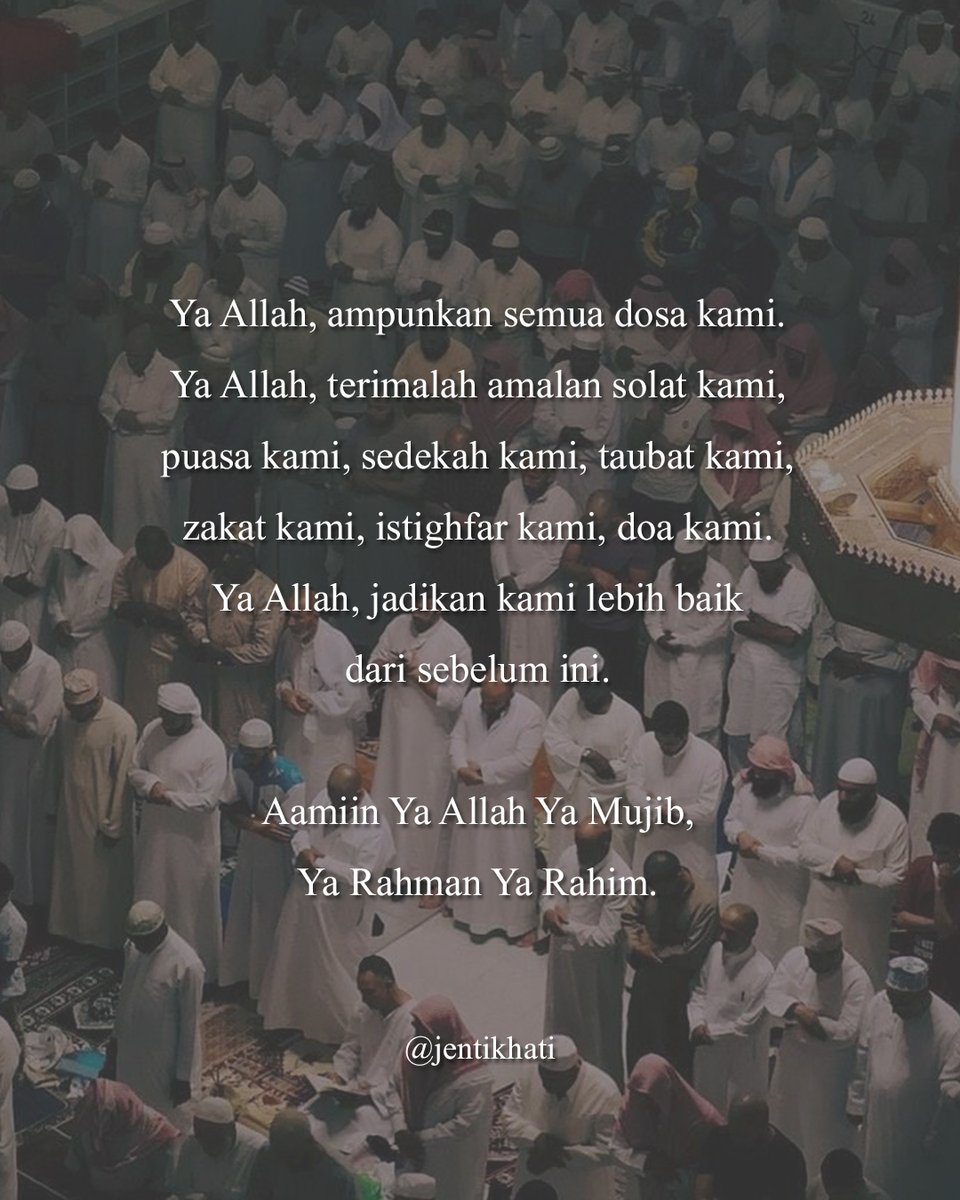 Ya Allah, ampunkan semua dosa kami.
Ya Allah, terimalah amalan solat kami,
puasa kami, sedekah kami, taubat kami,
zakat kami, istighfar kami, doa kami.
Ya Allah, jadikan kami lebih baik
dari sebelum ini.
Aamiin Ya Allah Ya Mujib,
Ya Rahman Ya Rahim.
@jentikhati